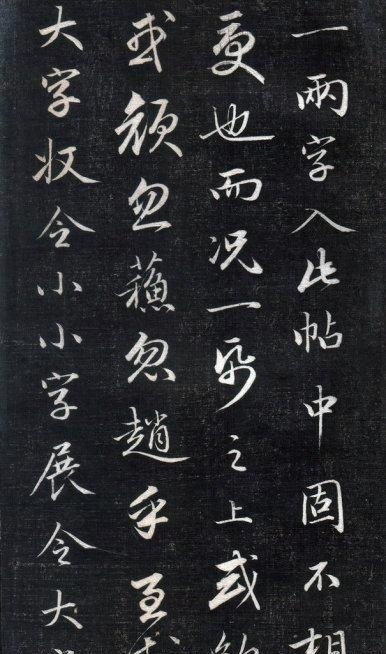 一兩字入此帖中固不相
更也而況一帋之上或
或顏忽蘇忽趙乎至
大字收令小小字展令大